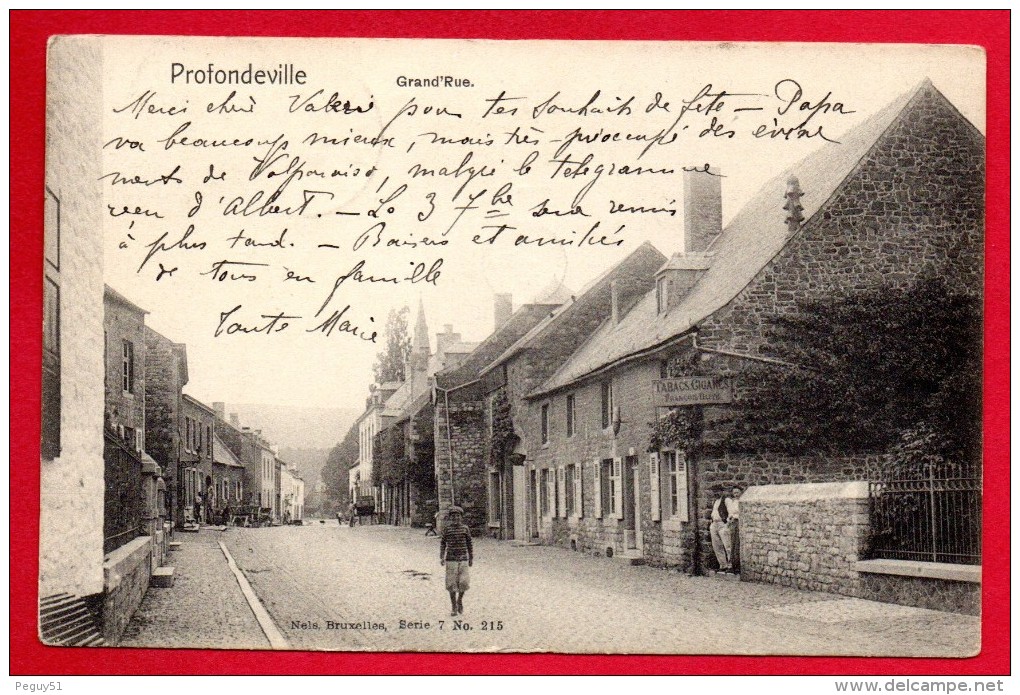 Profondeville
Grand'Rue.
Merci cher Valeri pour tes souhaits de fête – Papa
va beaucoup mieux, mais très préocupé des évène
ments de Valparaiso, malgré le telegramme
reçu d'Albert. – Le 3 7bre sera remis
à plus tard. – Baisers et amitiés
de tous en famille
Tante Marie
TABACS & CIGARES
Nels, Bruxelles, Serie 7 No. 215
Peguy51
www.delcampe.net